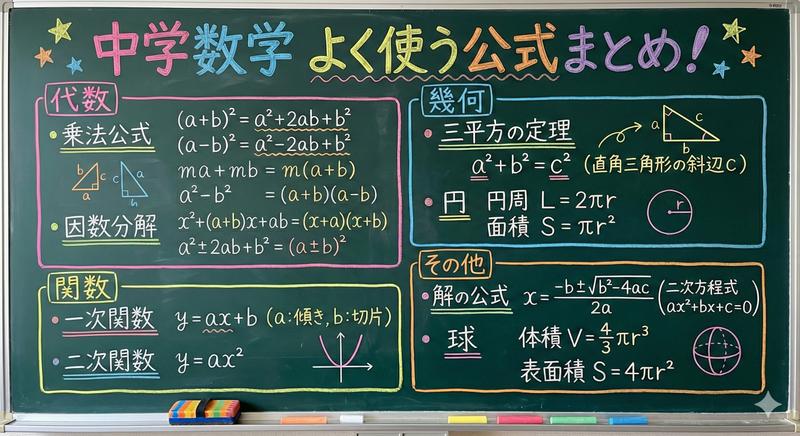 中学数学 よく使う公式まとめ!
代数
乗法公式
(a+b)²=a²+2ab+b²
(a-b)²=a²-2ab+b²
b
c
a
c
a
ma+mb=m(a+b)
a²-b²=(a+b)(a-b)
因数分解
x²+(a+b)x+ab=(x+a)(x+b)
a²±2ab+b²=(a±b)²
幾何
三平方の定理
a
c
b
a²+b²=c² (直角三角形の斜辺c)
円 円周 L=2πr
面積 S=πr²
r
関数
一次関数 y=ax+b (a:傾き,b:切片)
二次関数 y=ax²
その他
解の公式 x=(-b±√(b²-4ac))/2a (二次方程式 ax²+bx+c=0)
球 体積 V=4/3πr³
表面積 S=4πr²